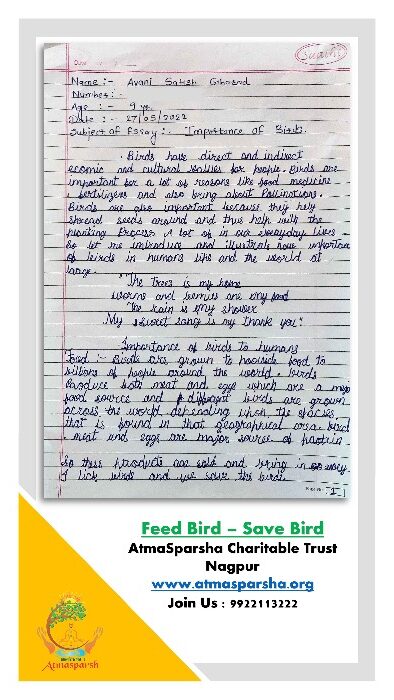 Name :- Avani Satish Gibhand
Number :-
Age :- 9 yr.
Date :- 27/05/2022
Subject of Essay :- Importance of Birds.
Birds have direct and indirect
ecomic and cultural values for people. Birds are
important for a lot of reasons like food medicine
fertilizers and also bring about Pollinations.
Birds are also important because they help
spread seeds around and thus help with the
planting Process a lot of in our everyday lives
So let me introduce and illustrate how importance
of birds in humans life and the world at
large.
"The trees is my home
worms and berries are my food
The rain is my shower
My sweet song is my thank you"
Importance of birds to humans
Food :- Birds are grown to provide food to
billions of people around the world. Birds
Produce both meat and eggs which are a major
food source and different birds are grown
across the world depending upon the species
that is found in that geographical area bird
meat and eggs are major source of protein
So these products are sold and bring in money
I lick birds and we save the birds.
Feed Bird – Save Bird
AtmaSparsha Charitable Trust
Nagpur
www.atmasparsha.org
Join Us : 9922113222
Atmasparsh